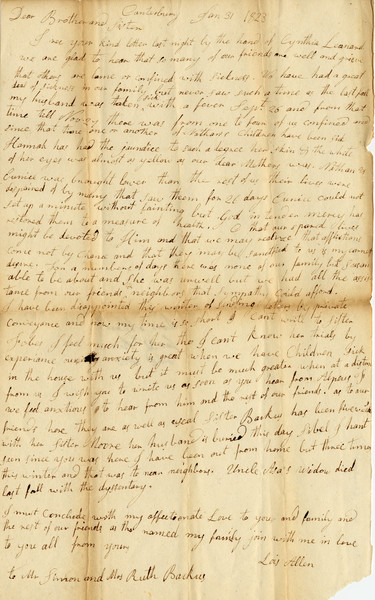 Canterbury Jan 31 1823
Dear Brother and Sister
I see your kind letter last night by the hand of Cynthia Leanard
we are glad to hear that so many of our friends are well and grieve
that others are lame or confined with sickness. We have had a great
deal of sickness in our family but never saw such a time as the last fall
my husband was taken sick with a fever Sept 26 and from that
time till Nov there was from one to four of us confined and
since that time one or another of Nathan's Children have been sick
Hannah has had the jaundice to such a degree her skin & the white
of her eyes was almost as yellow as our dear Mothers was. Nathan &
Eunice was brought lower than the rest of us their lives were
despaired of by many that saw them for 20 days Eunice could not
set up a minute without fainting but God in tender mercy has
restored them to a measure of health. O that our spared lives
might be devoted to Him and that we may realize that afflictions
come not by Chance and that they may be sanctified to us is my earnest
desire. For a number of days there was none of our family but Susan
able to be about and she was unwell but we had all the assis
tance from our friends neighbors that sympathy could afford.
I have been disappointed the by private
conveyance and now my time is so short I can't write to sister
I feel much for her tho I can't know her trials by
experience anxiety is great when we have Children sick
in the house with us but it must be much greater when at a distance
from us I wish you to write us as soon as you hear from Alpheus
we feel anxious to hear from him and the rest of our friends. as to our
friends here they are as well as usual Sister Backus has been
with her Sister Moore her husband is buried this day Sibel I hant
seen since you was here I have been out from home but three times
this winter and that was to near neighbors. Uncle Asa's widow died
last fall with the dysentary.
I must conclude with my affectionate Love to you and family and
the rest of our friends as tho named my family join with me in love
to you all from yours
Lois Allen
to Mr Simon and Mrs Ruth Backus